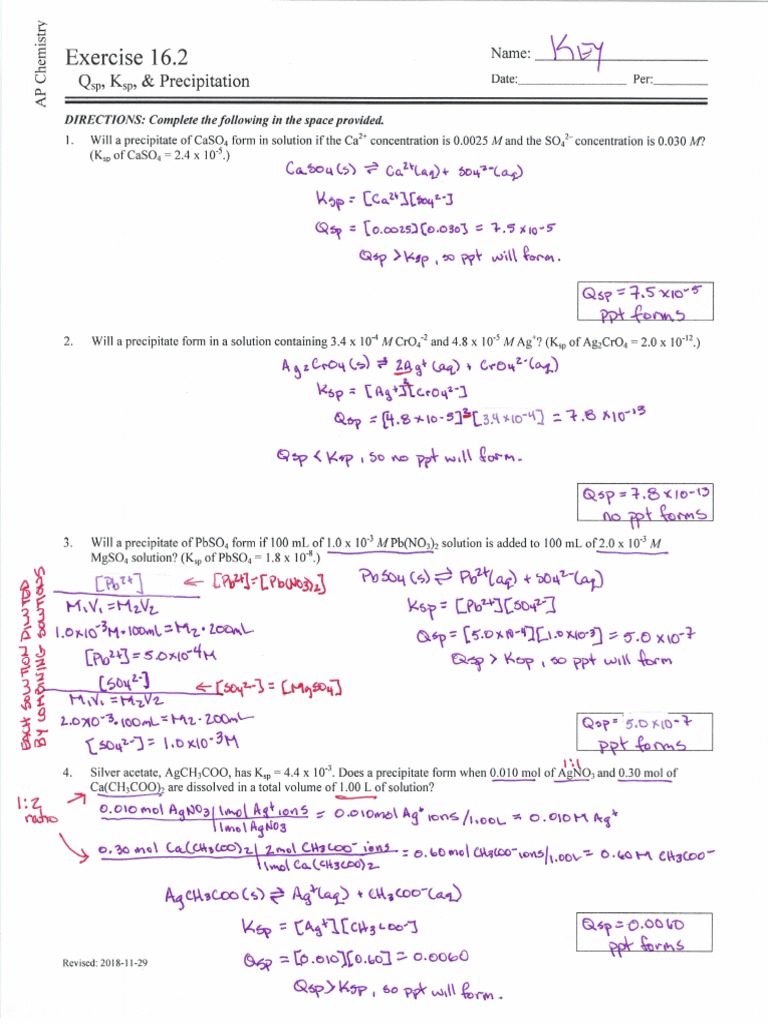 AP Chemistry
Exercise 16.2
Qsp, Ksp, & Precipitation
Name: KEY
Date: Per:
DIRECTIONS: Complete the following in the space provided.
1. Will a precipitate of CaSO₄ form in solution if the Ca²⁺ concentration is 0.0025 M and the SO₄²⁻ concentration is 0.030 M?
(Ksp of CaSO₄ = 2.4 x 10⁻⁵.)
CaSO₄(s) ⇌ Ca²⁺(aq) + SO₄²⁻(aq)
Ksp = [Ca²⁺][SO₄²⁻]
Qsp = [0.0025][0.030] = 7.5 x 10⁻⁵
Qsp > Ksp, so ppt will form.
Qsp = 7.5 x 10⁻⁵
ppt forms
2. Will a precipitate form in a solution containing 3.4 x 10⁻⁴ M CrO₄⁻² and 4.8 x 10⁻⁵ M Ag⁺? (Ksp of Ag₂CrO₄ = 2.0 x 10⁻¹².)
Ag₂CrO₄(s) ⇌ 2Ag⁺(aq) + CrO₄²⁻(aq)
Ksp = [Ag⁺]²[CrO₄²⁻]
Qsp = [4.8 x 10⁻⁵]²[3.4 x 10⁻⁴] = 7.8 x 10⁻¹³
Qsp < Ksp, so no ppt will form.
Qsp = 7.8 x 10⁻¹³
no ppt forms
3. Will a precipitate of PbSO₄ form if 100 mL of 1.0 x 10⁻³ M Pb(NO₃)₂ solution is added to 100 mL of 2.0 x 10⁻³ M
MgSO₄ solution? (Ksp of PbSO₄ = 1.8 x 10⁻⁸.)
EACH SOLUTION DILUTED
BY COMBINING SOLUTIONS
[Pb²⁺] ← [Pb²⁺] = [Pb(NO₃)₂]
M₁V₁ = M₂V₂
1.0x10⁻³M·100mL = M₂·200mL
[Pb²⁺] = 5.0x10⁻⁴M
[SO₄²⁻] ← [SO₄²⁻] = [MgSO₄]
M₁V₁ = M₂V₂
2.0x10⁻³·100mL = M₂·200mL
[SO₄²⁻] = 1.0x10⁻³M
PbSO₄(s) ⇌ Pb²⁺(aq) + SO₄²⁻(aq)
Ksp = [Pb²⁺][SO₄²⁻]
Qsp = [5.0x10⁻⁴][1.0x10⁻³] = 5.0x10⁻⁷
Qsp > Ksp, so ppt will form
Qsp = 5.0x10⁻⁷
ppt forms
1:1
4. Silver acetate, AgCH₃COO, has Ksp = 4.4 x 10⁻³. Does a precipitate form when 0.010 mol of AgNO₃ and 0.30 mol of
Ca(CH₃COO)₂ are dissolved in a total volume of 1.00 L of solution?
1:2
ratio
0.010 mol AgNO₃ | 1mol Ag⁺ ions = 0.010mol Ag⁺ ions/1.00L = 0.010 M Ag⁺
1mol AgNO₃
0.30 mol Ca(CH₃COO)₂ | 2mol CH₃COO⁻ ions = 0.60mol CH₃COO⁻ ions/1.00L = 0.60 M CH₃COO⁻
1mol Ca(CH₃COO)₂
AgCH₃COO(s) ⇌ Ag⁺(aq) + CH₃COO⁻(aq)
Ksp = [Ag⁺][CH₃COO⁻]
Qsp = [0.010][0.60] = 0.0060
Qsp > Ksp, so ppt will form.
Qsp = 0.0060
ppt forms
Revised: 2018-11-29